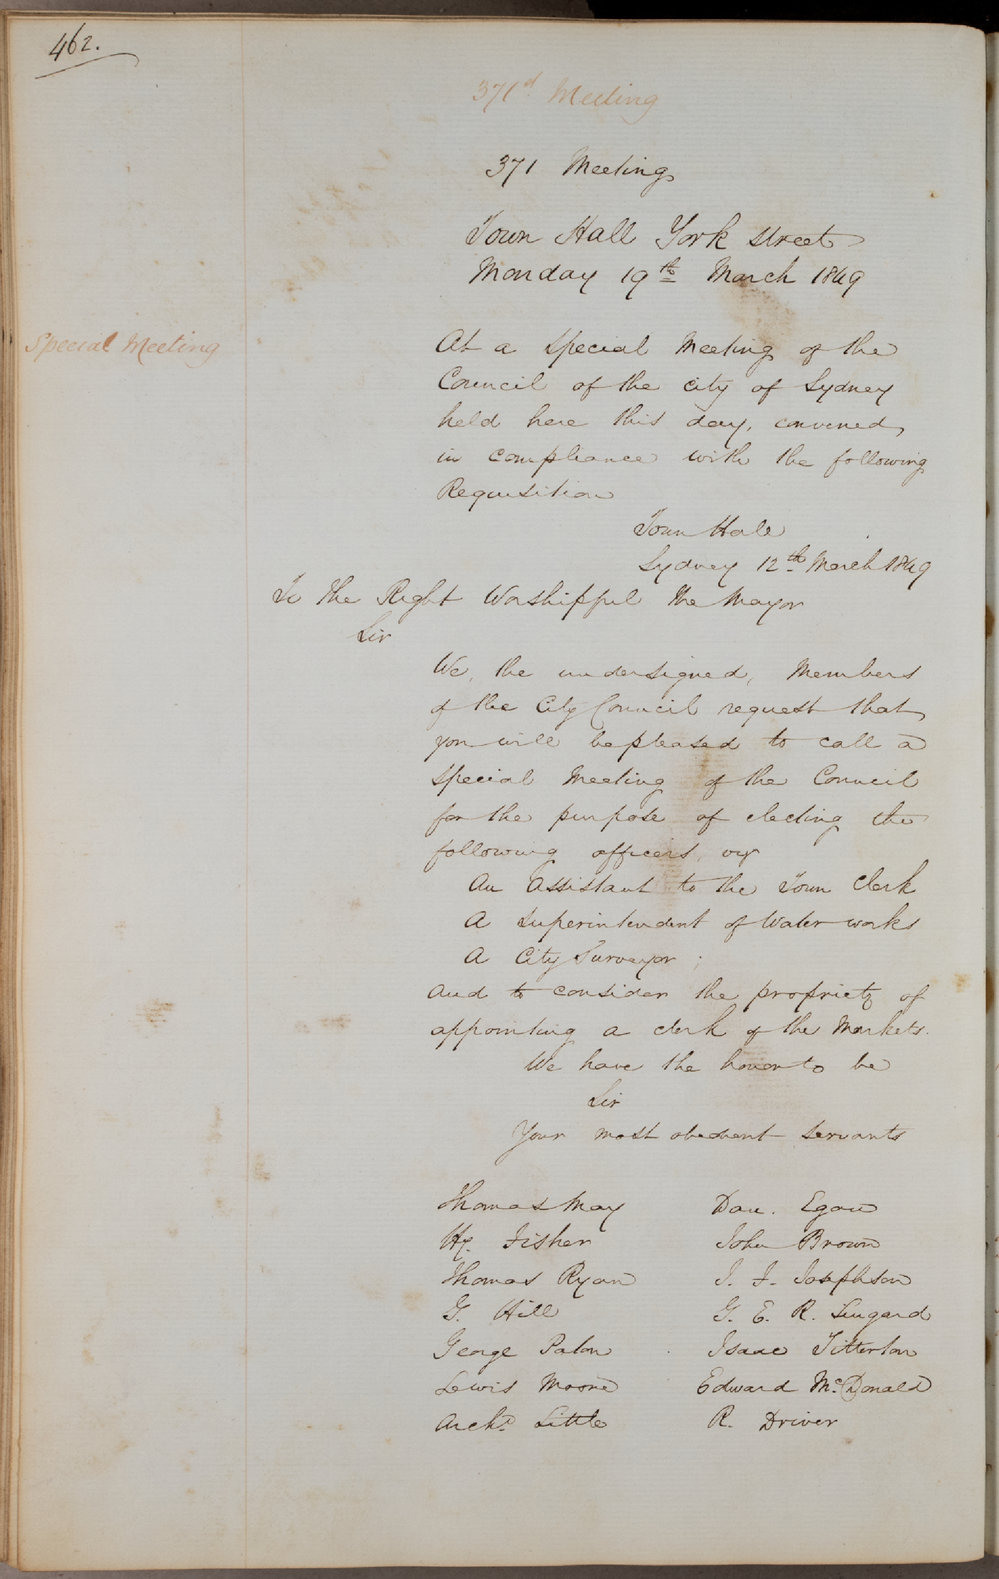 462.
371st Meeting
371 Meeting
Town Hall York Street
Monday 19th March 1849
Special Meeting
At a Special Meeting of the
Council of the city of Sydney
held here this day, convened,
in compliance with the following
Requisition
Town Hall
Sydney 12th March 1849
To the Right Worshipful the Mayor
Sir
We, the undersigned, Members
of the City Council request that
you will be pleased to call a
Special Meeting of the Council
for the purpose of electing the
following officers, viz
An Assistant to the Town Clerk
A Superintendent of Water works
A City Surveyor;
and to consider the propriety of
appointing a clerk of the Markets.
We have the honor to be
Sir
Your most obedient servants
Thomas May Dan. Egan
Hy. Fisher John Brown
Thomas Ryan J. F. Josephson
G. Hill G. E. R. Lingard
George Paton Isaac Titterton
Lewis Moore Edward McDonald
Archd Little R. Driver